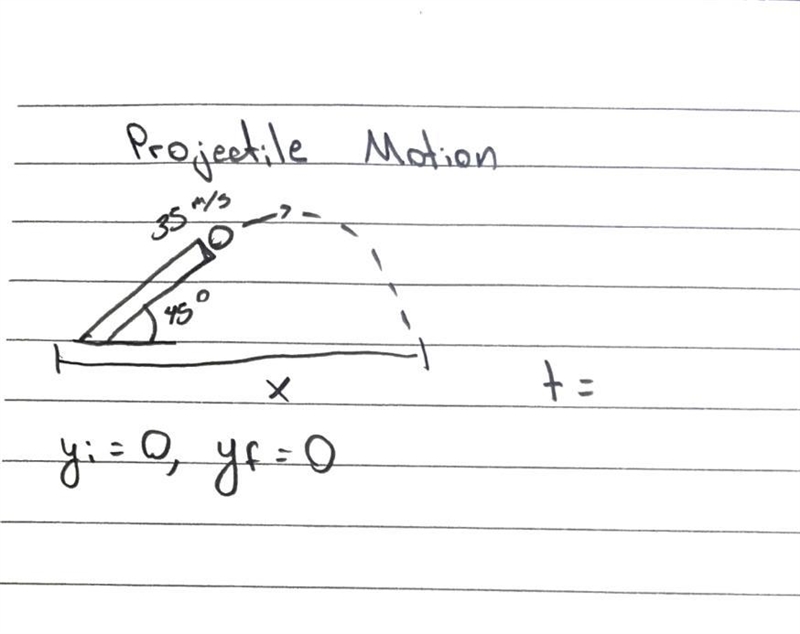 Projectile Motion
35 m/s
45°
x
t =
yi = 0, yf = 0